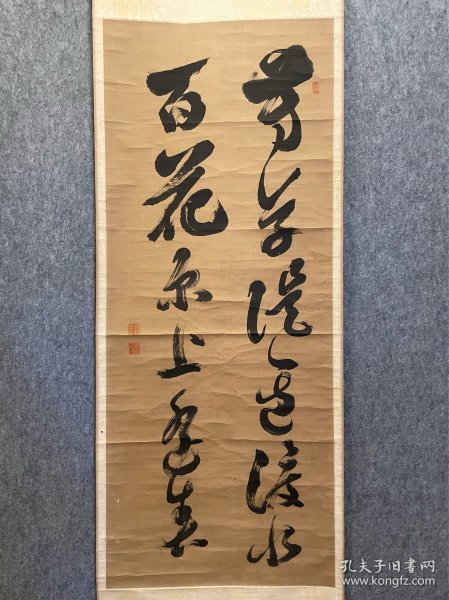 芳草隄邊渡水
百花原上逢春
孔夫子旧书网
www.kongfz.com